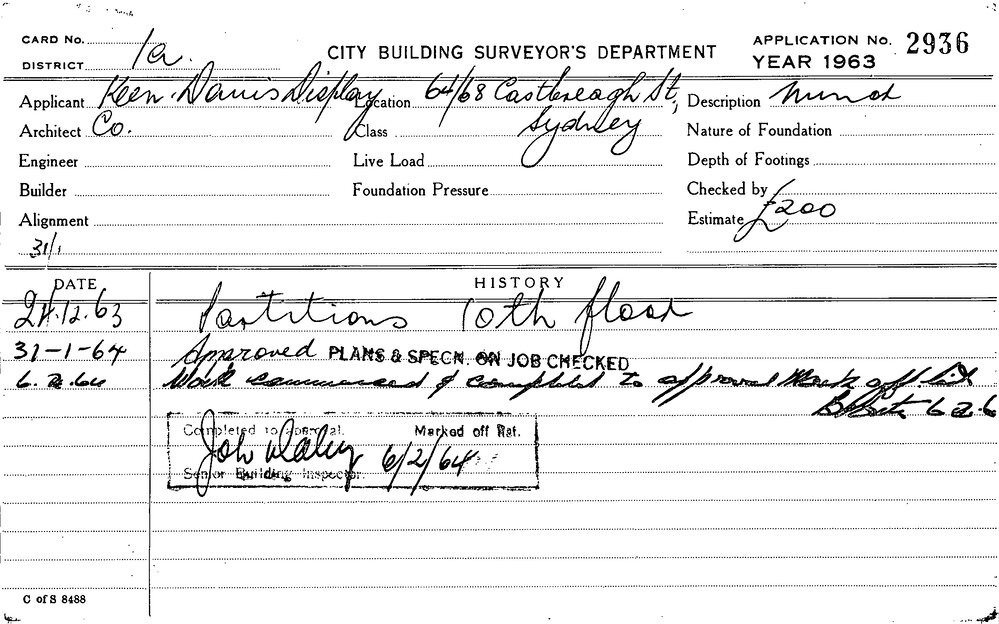 CARD No.
DISTRICT 1a.
CITY BUILDING SURVEYOR'S DEPARTMENT
APPLICATION No. 2936
YEAR 1963
Applicant Keen-Davis Display Location 64/68 Castlereagh St, Description Minor
Architect Co. Class Sydney Nature of Foundation
Engineer Live Load Depth of Footings
Builder Foundation Pressure Checked by
Alignment Estimate £200
31/1
DATE HISTORY
24.12.63 Partitions 10th floor
31-1-64 Approved PLANS & SPECN. ON JOB CHECKED
6.2.64 Work commenced & completed to approval Mark off list
6.2.6
Completed to approval. Marked off Rat.
John 6/2/64
Senior Building Inspector.
C of S 8488